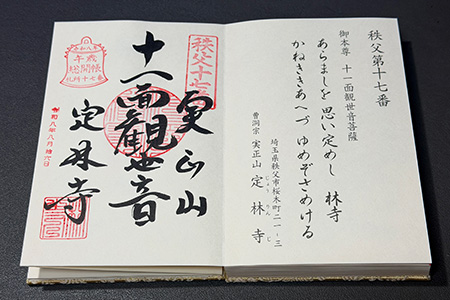 秩父第十七番
御本尊 十一面観世音菩薩
あらましを 思い定めし 林寺
かねききあへづ ゆめぞさめける
埼玉県秩父市桜木町二一-三
曹洞宗 実正山 定林寺
じょうりんじ
秩父十七
実正山
十一面観世音
定林寺
令和八年
午歳
総開帳
札所十七番